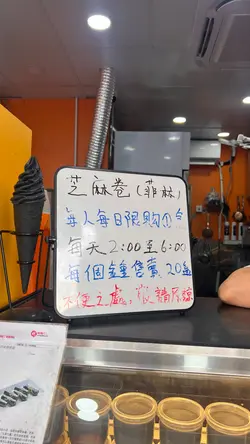 芝麻卷(菲林)
每人每日限購①盒
每天2:00至6:00
每個鐘售賣20盒
不便之處,敬請原諒